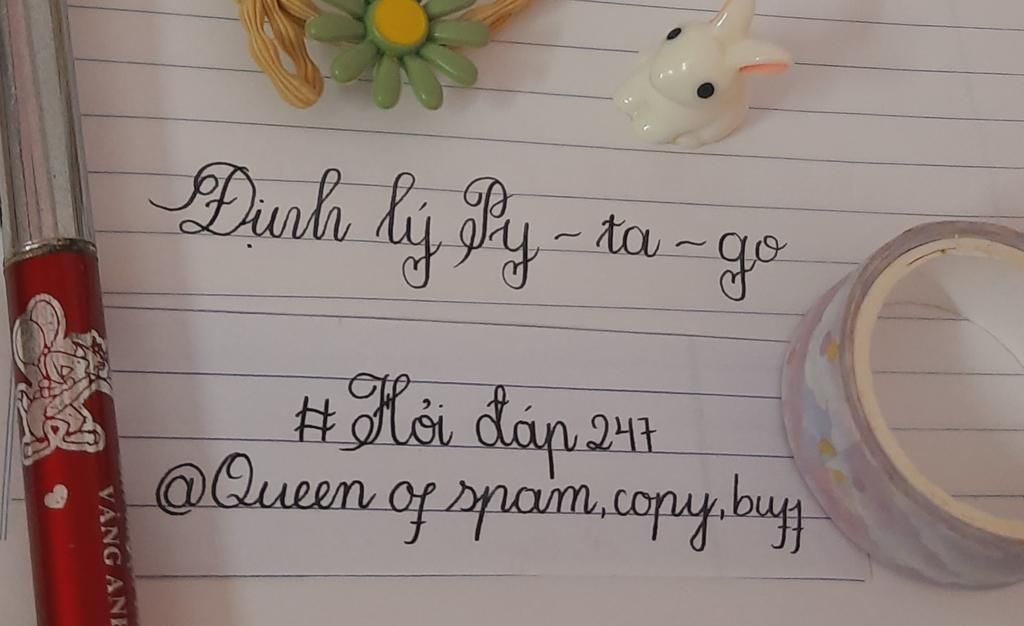 Định lý Py - ta - go
# Hỏi đáp 247
@Queen of spam, copy, buff
VÀNG ANH